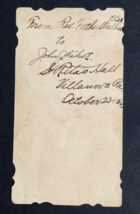 From Rev. Father
to
John
S. Rita's Hall
Villanova Pa
October 23